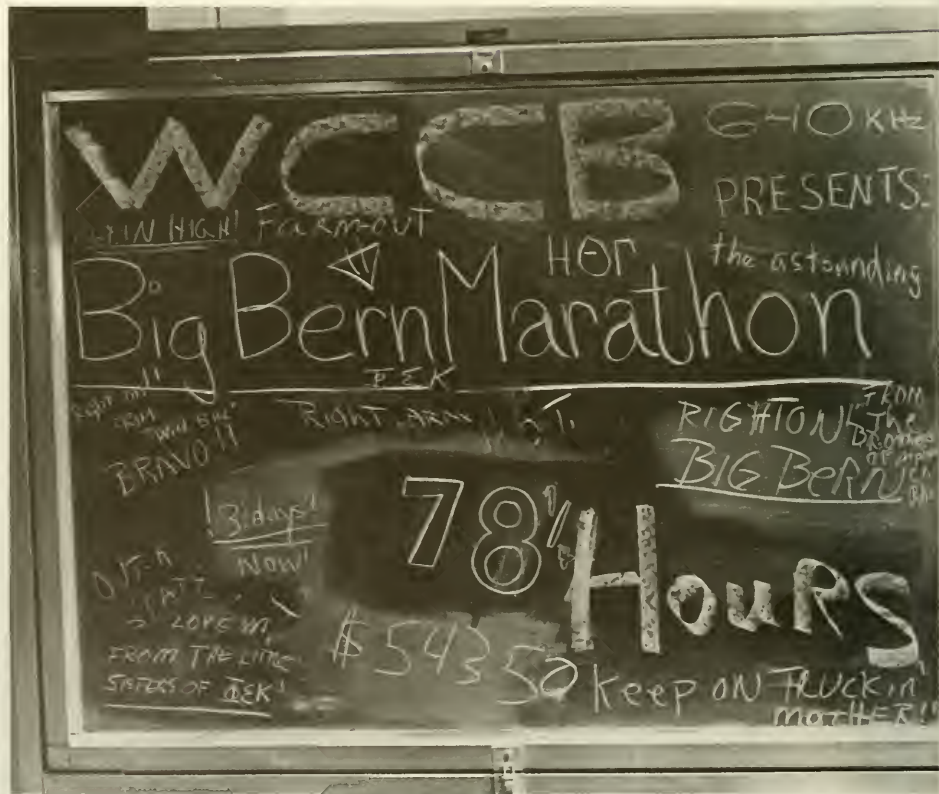 WCCB 640 KHz
PRESENTS:
HIGH! FARM-OUT
HOT
the astounding
Big Bern Marathon
ΦΣK
RIGHT ARM
RIGHT ON
BIG BERN
FROM
The
BRAVO!!
3 days!
NOW!
78 1/2 HOURS
LOVE
FROM THE LITTLE
SISTERS OF ΦΣK!
$543 50
Keep ON TRUCKIN'
MOTHER!!